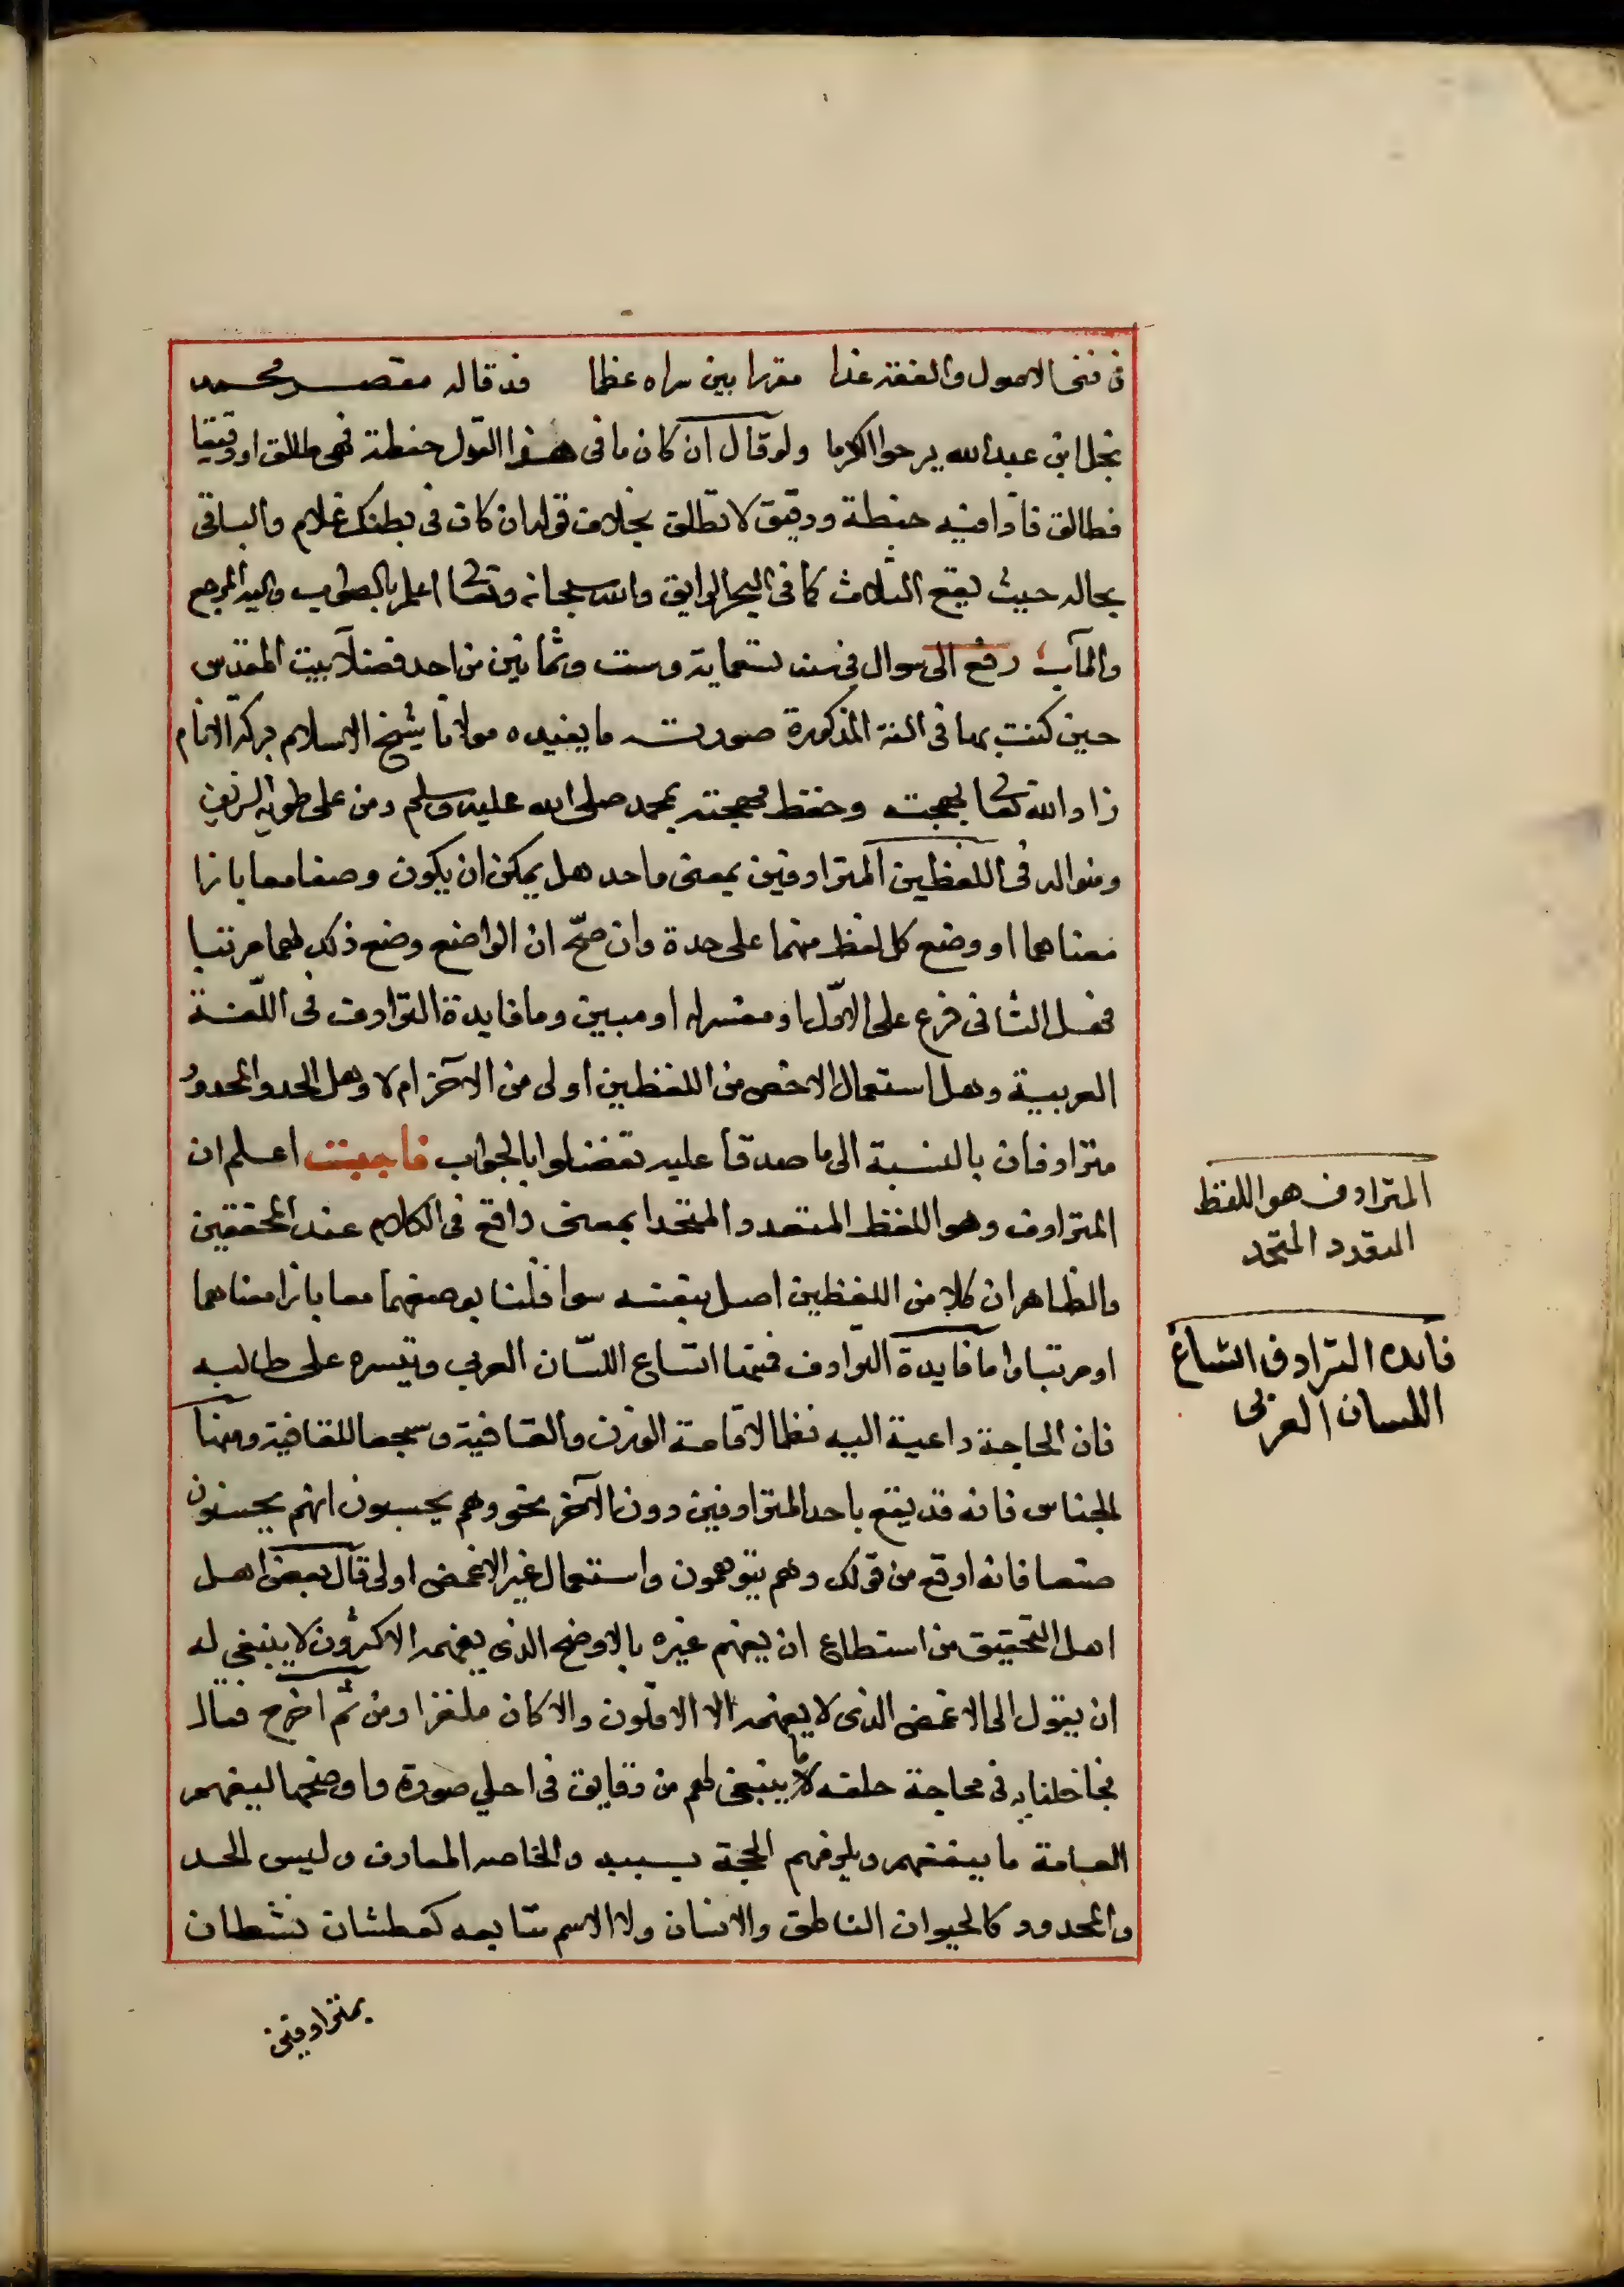 فى فنى الاصول والفقه غدا مقررا بين سراه عظما قد قاله مقصر محمد
نجل ابن عبد الله يرحوا الكرما ولو قال ان كان ما فى هذا القول حنطة فهى طالق او دقيقا
فطالق فاذا فيه حنطة ودقيق لا تطلق بخلاف قوله ان كان فى بطنك غلام والباقى
بحاله حيث يقع الثلاث كما فى البحر الرايق والله سبحانه وتعالى اعلم بالصواب واليه المرجع
والمآب رفع الى سوال فى سنه تسعماية وست وثمانين من احد فضلآ بيت المقدس
حين كنت بها فى السنة المذكورة صورته ما يفيده مولانا شيخ الاسلام بركة الانام
زاد الله تعالى بهجته وحفظ مهجته بمحمد صلى الله عليه وسلم ومن على
ونواله فى اللفظين المترادفين بمعنى واحد هل يمكن ان يكون وضعا معا بازا
معناهما او وضع كل لفظ منهما على حدة وان صحّ ان الواضع وضع ذلك لهما مرتبا
فهل الثانى فرع على الاول او مفسر له او مبين وما فايدة الترادف فى اللّغة
العربية وهل استعمال الاخص من اللفظين اولى من الآخر ام لا وهل الحد والمحدود
مترادفان بالنسبة الى ما صدقا عليه تفضلوا بالجواب فاجبت اعلم ان
المترادف وهو اللفظ المتعدد المتحد المعنى واقع فى الكلام عند المحققين
والظاهر ان كلا من اللفظين اصل بنفسه سوا قلنا بوضعهما معا بازا معناهما
او مرتبا واما فايدة الترادف فمنها اتساع اللسّان العربى وتيسره على طالبه
فان الحاجة داعية اليه نظما لاقامة الوزن والقافية وسجعا للقافية ومنها
الجناس فانه قد يقع باحد المترادفين دون الآخر نحو وهم يحسبون انهم يحسنون
صنعا فانه اوقع من قولك وهم يتوهمون واستعمال غير الاغمض اولى قال بعض اهل
اهل التحقيق من استطاع ان يفهم غيره بالاوضح الذى يفهمه الاكثرون لا ينبغى له
ان يتول الى الاغمض الذى لا يفهمه الا الاقلون والا كان ملغزا ومن ثم اخرج تعالى
مخاطباته فى محاجة خلقه ما لا ينبغى لهم من دقايق فى اجلى صورة واوضحها ليفهم
العامة ما يقنعهم ويلزمهم الحجة بسببه والخاصه المعارف وليس الحد
والمحدود كالحيوان الناطق والانسان ولا الاسم وتابعه كعطشان نشطان
بمترادفين
المترادف هو اللفظ
المتعدد المتحد
فائده الترادف اتساع
اللسان العربى